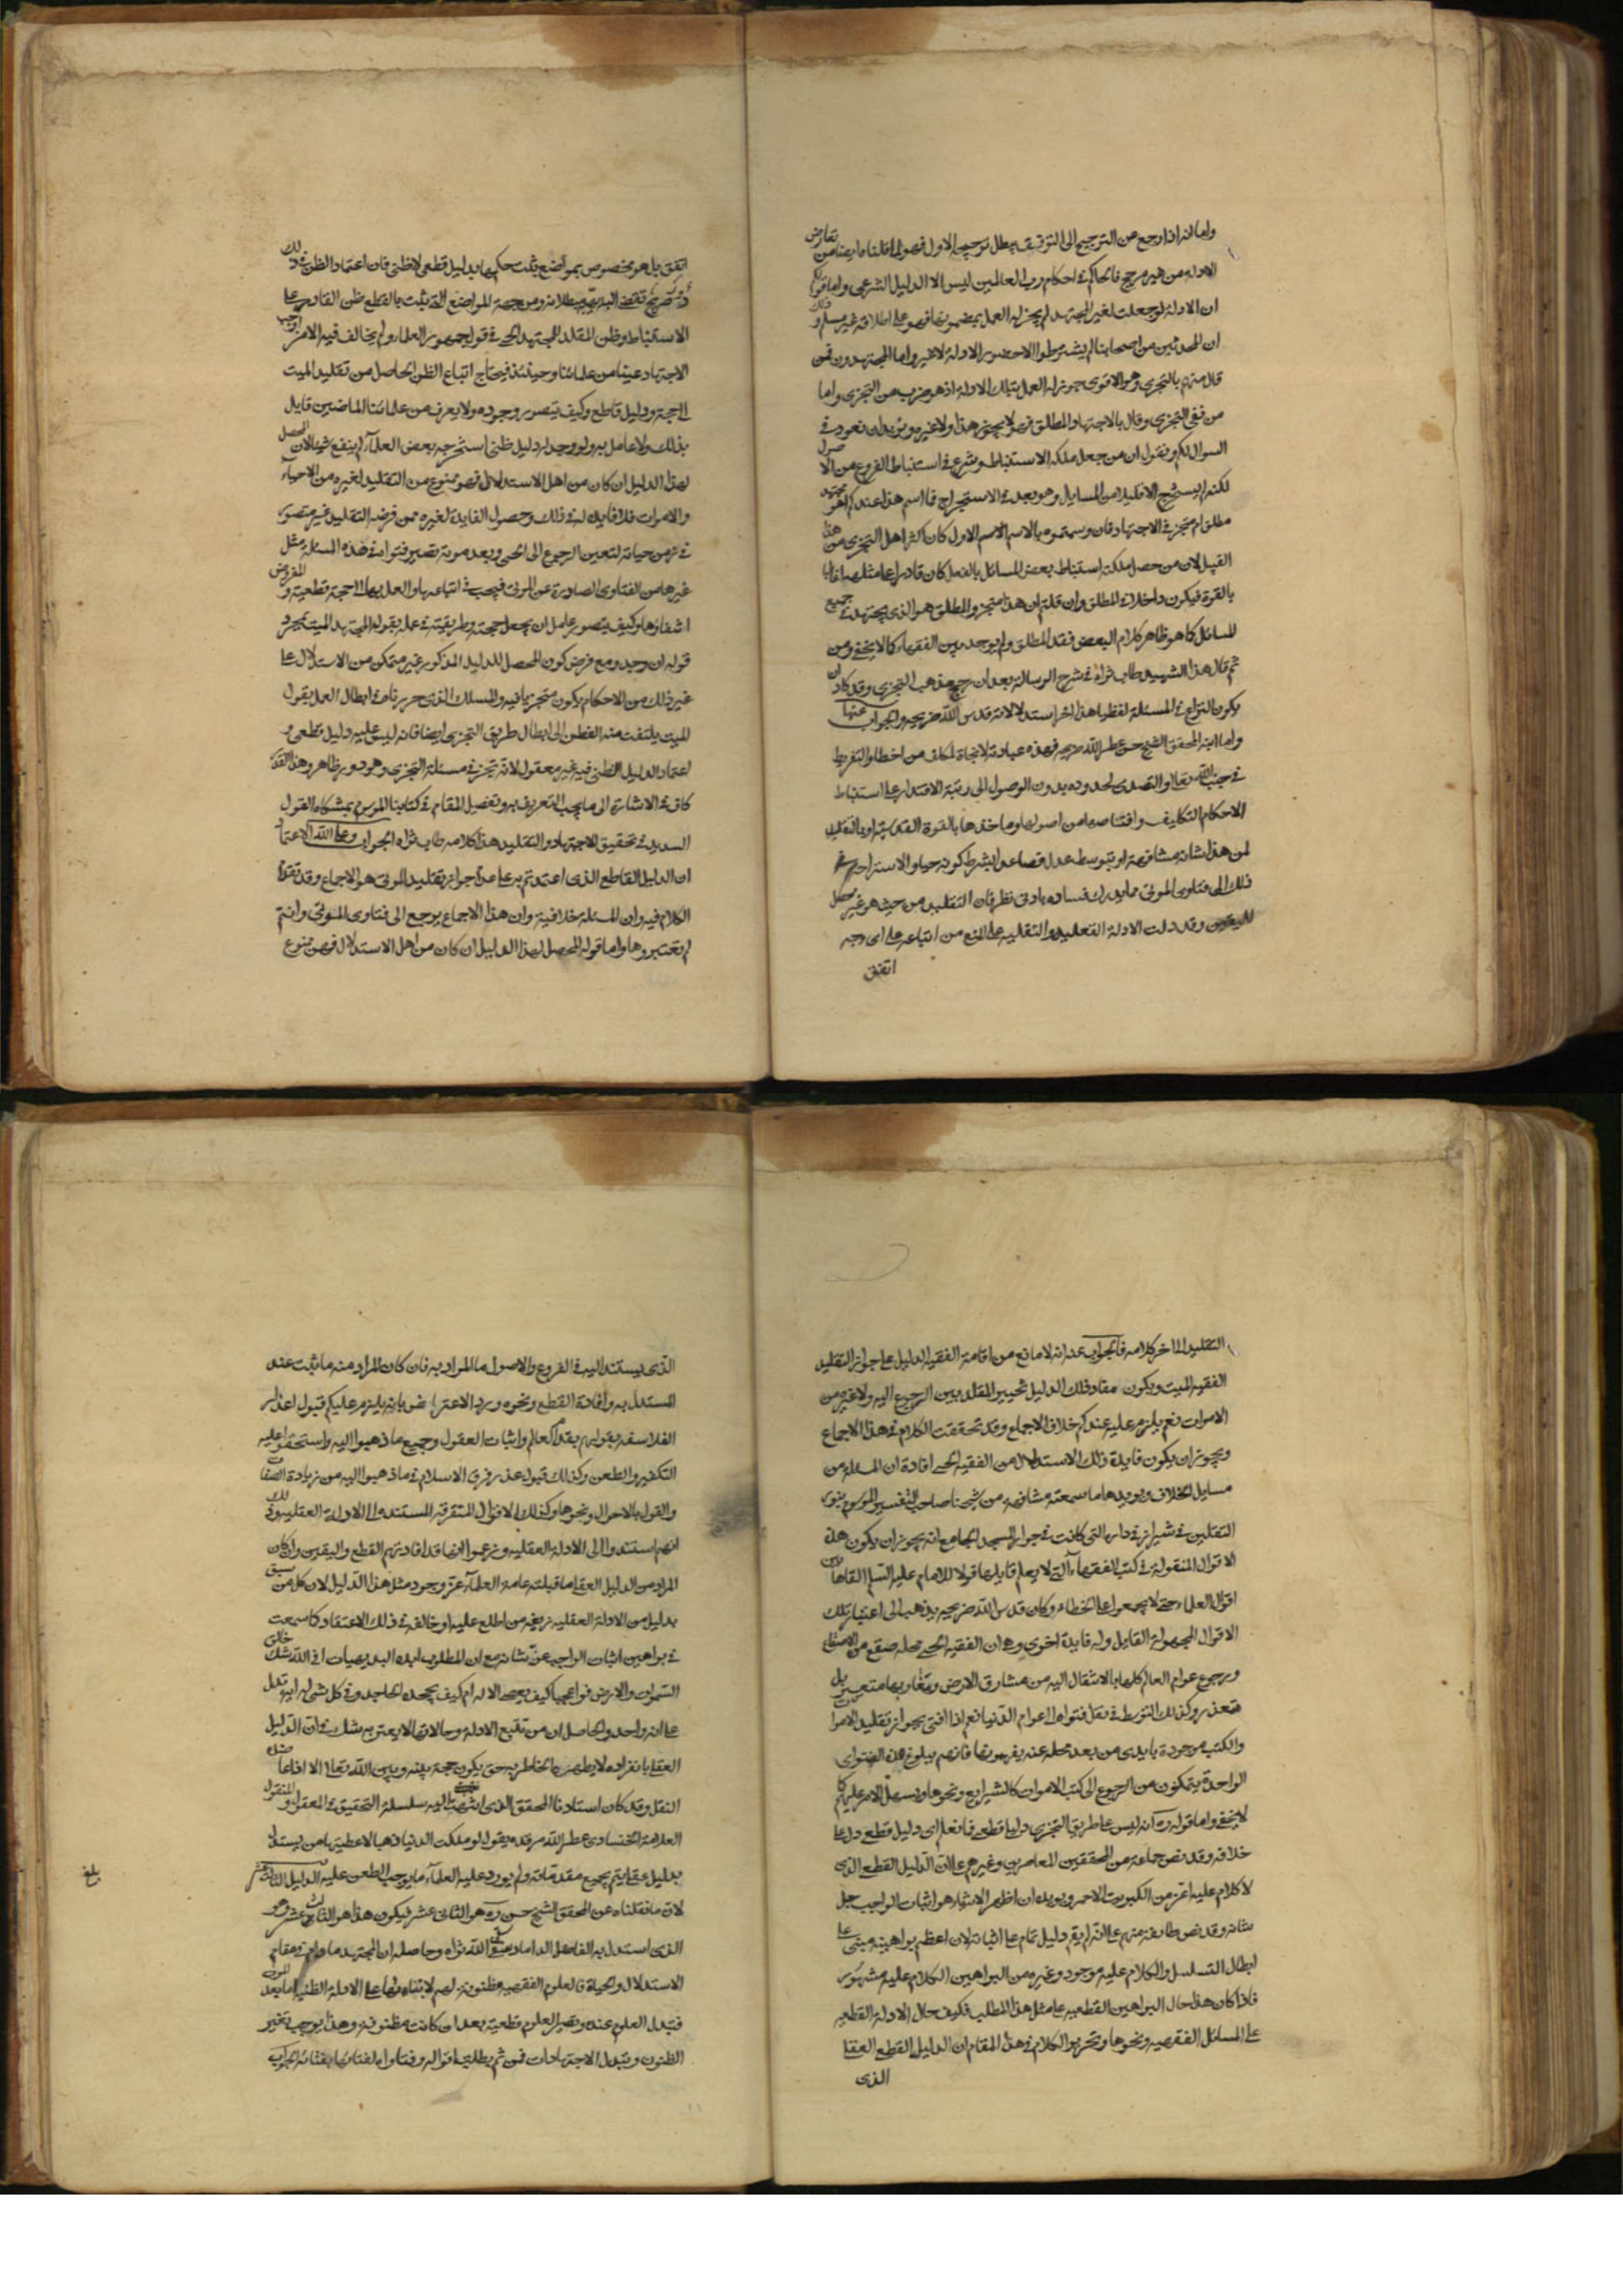 واما انه اذا رجع عن الترجيح الى التوقف يبطل ترجيحه الاول فهو لما قلناه ايضا من تعارض
الادلة من غير مرجح فالحاكم في احكام رب العالمين ليس الا الدليل الشرعي واما قولكم
ان الادلة لو جعلت لغير المجتهد لم يجز له العمل بمضمونها فهو على اطلاقه غير مسلم وذلك
ان المحدثين من اصحابنا لم يشترطوا الا حضور الادلة لا غير واما المجتهدون فمن
قال منهم بالتجزي وهو الاقوى جوز له العمل بتلك الادلة اذ هو ضرب من التجزي واما
من نفى التجزي وقال بالاجتهاد المطلق فهو لا يجوز هذا ولا غيره ونريد ان نعود في
السوال لكم ونقول ان من جعل ملكه الاستنباط وشرع في استنباط الفروع من الاصول
لكنه لم يستخرج الا قليلا من المسايل وهو بعد في الاستخراج فما اسم هذا عندكم اهو مجتهد
مطلق ام متجز في الاجتهاد فان وسمتموه بالاسم الاول كان اكثر اهل التجزي من هذا
القبيل لان من حصل ملكة استنباط بعض المسائل بالفعل كان قادرا على مثلها غالبا
بالقوة فيكون داخلا في المطلق وان قلتم ان هذا متجز والمطلق هو الذي يجتهد في جميع
المسائل كما هو ظاهر كلام البعض فقد المطلق ولم يوجد بين الفقهاء كما لا يخفى ومن
ثم قال هذا الشهيد طاب ثراه في شرح الرسالة بعد ان رجح مذهب التجزي وقد كاد ان
يكون النزاع في المسئلة لفظيا هذا اخر استدلالاته قدس الله ضريحه والجواب عنها
واما ابنه المحقق الشيخ حسن عطر الله ضريحه فهذه عبارته لا نجاة لمكلف من اخطار التفريط
في جنب الله تعالى والتصدي لحدوده بدون الوصول الى رتبة الاقتدار على استنباط
الاحكام التكليف واقتناصها من اصولها وماخذها بالقوة القدسية او بالتقليد
لمن هذا شانه مشافهة او بتوسط عدل فصاعدا بشرط كونه حيا والاستراحة في
ذلك الى فتاوى الموتى مما يدرك فساده بادنى نظر فان التقليد من حيث هو غير محصل
لليقين وقد دلت الادلة العقلية والنقلية على المنع من اتباعه على اى وجه
اتفق
اتفق بل هو مخصوص بمواضع يثبت حكمها بدليل قطعي لا ظني فان اعتماد الظن في ذلك
دور صريح تقضى البديهة ببطلانه ومن جهة المواضع التي يثبت بالقطع ظن القادر على
الاستنباط وظن المقلد للمجتهد الحي في قول جمهور العلماء ولم يخالف فيه الا من اوجب
الاجتهاد عينا من علمائنا وحينئذ فيحتاج اتباع الظن الحاصل من تقليد الميت
الى حجة ودليل قاطع وكيف يتصور وجوده ولا يعرف من علمائنا الماضين قايل
بذلك ولا عامل به ولو وجد له دليل ظني استخرجه بعض العلماء لم ينفع شيئا لان المحصل
لهذا الدليل ان كان من اهل الاستدلال فهو ممنوع من التقليد لغيره من الاحياء
والاموات فلا فايدة له في ذلك وحصول الفايدة لغيره ممن فرضه التقليد غير متصور
في زمن حياته لتعين الرجوع الى الحي وبعد موته تصير فتواه في هذه المسئلة مثل
غيرها من الفتاوى الصادرة عن الموتى فيجب في اتباعها والعمل بها الحجة قطعية والمفروض
انتفاؤها وكيف يتصور عامل ان يجعل حجته وطريقته في عمله بقول المجتهد الميت بمجرد
قوله ان وجد ومع فرض كون المحصل للدليل المذكور غير متمكن من الاستدلال على
غير ذلك من الاحكام يكون متجزيا فيه والمسلك الذي حررناه في ابطال العمل بقول
الميت يلتفت منه الفطن الى ابطال طريق التجزي ايضا فانه ليس عليه دليل قطعي و
اعتماد الدليل الظني فيه غير معقول لانه تجز في مسئلة التجزي وهو دور ظاهر وهذا القدر
كاف في الاشارة الى ما يجب التعريف به وتفصيل المقام في كتابنا الموسوم بمشكاة القول
السديد في تحقيق الاجتهاد والتقليد هذا كلامه طاب ثراه الجواب وعلى الله الاعتماد
ان الدليل القاطع الذي اعتدتم به على عدم جواز تقليد الموتى هو الاجماع وقد تقدم
الكلام فيه وان المسئلة خلافية وان هذا الاجماع يرجع الى فتاوى الموتى وانتم
لم تعتبروها واما قوله المحصل لهذا الدليل ان كان من اهل الاستدلال فهو ممنوع
التقليد الى اخر كلامه فالجواب عنه انه لا مانع من اقامة الفقيه الدليل على جواز التقليد
الفقيه الميت ويكون مفاد ذلك الدليل تخيير المقلد بين الرجوع اليه والى غيره من
الاموات نعم يلزم عليه عندكم خلاف الاجماع وقد تحققت الكلام في هذا الاجماع
ويجوز ان يكون فايدة ذلك الاستدلال من الفقيه الحي افادة ان المسئلة من
مسايل الخلاف ويويدها ما سمعته مشافهة من شيخنا صاحب التفسير الموسوم بنور
الثقلين في شيراز في داره التي كانت في جوار المسجد الجامع انه يجوز ان يكون هذه
الاقوال المنقولة في كتب الفقهاء التي لا يعلم قايلها قولا للامام عليه السلم القاها بين
اقوال العلماء حتى لا يجمعوا على الخطاء وكان قدس الله ضريحه يذهب الى اعتبار تلك
الاقوال المجهولة القايل وله فايدة اخرى وهي ان الفقيه الحي محله صقع من الاصقاع
ورجوع عوام العالم كلها بالانتقال اليه من مشارق الارض ومغاربها متعسر بل
متعذر وكذلك التوسط في نقل فتواه الى عوام الدنيا نعم اذا افتى بجواز تقليد الاموات
والكتب موجودة بايدي من بعد محله عنه يفهمونها فانهم ببلوغ هذه الفتوى
الواحدة يتمكنون من الرجوع الى كتب الاموات كالشرايع ونحوها ويسهل الامر عليهم كما
لا يخفى واما قوله ره انه ليس على طريق التجزي دليل قطعي فانعم اى دليل قطعي دل على
خلافه وقد نص جماعة من المحققين المعاصرين وغيرهم على ان الدليل القطعي الذي
لا كلام عليه اعز من الكبريت الاحمر ويويده ان اظهر الاشياء هو اثبات الواجب جل
شانه وقد نص طائفة منهم على انه لم يقم دليل تمام على اثباته لان اعظم براهينه مبنى على
ابطال التسلسل والكلام عليه موجود وغيره من البراهين الكلام عليه مشهور
فاذا كان هذا حال البراهين القطعية على مثل هذا المطلب فكيف حال الادلة القطعية
على المسائل الفقهية ونحوها وتحرير الكلام في هذا المقام ان الدليل القطعي العقلي
الذي
الذي يستند اليه في الفروع والاصول ما المراد به فان كان المراد منه ما ثبت عند
المستدل به وافادة القطع ونحوه ورد الاعتراض بانه يلزم عليكم قبول اعذار
الفلاسفة بقولهم بقدم العالم واثبات العقول وجميع ما ذهبوا اليه واستحقوا عليه
التكفير والطعن وكذلك قبول عذر فرق الاسلام في ما ذهبوا اليه من زيادة الصفات
والقول بالاحوال ونحوها وكذلك الاقوال المتفرقة المستندة الى الادلة العقلية وذلك
انهم استندوا الى الادلة العقلية وزعموا انها قد افادتهم القطع واليقين وان كان
المراد من الدليل العقلي ما قبلته عامة العلماء عز وجود مثل هذا الدليل لان كل من سبق
بدليل من الادلة العقلية زيفه من اطلع عليه او خالفه في ذلك الاعتقاد كما سمعت
في براهين اثبات الواجب عز شانه مع ان المطلوب ابده البديهيات افي الله شك خالق
السموات والارض فواعجبا كيف يعصى الاله ام كيف يجحده الجاحد وفي كل شيء له اية تدل
على انه واحد والحاصل ان من تتبع الادلة وحالاتها لا يعتريه شك في ان الدليل
العقلي بانفراده لا يطمئن الخاطر به حتى يكون حجة بينه وبين الله تعالى الا اذا عاضده
النقل وقد كان استادنا المحقق الذي انتهت اليه سلسلة التحقيق في المعقول والمنقول
العلامة الخنساري عطر الله مرقده يقول لو ملكت الدنيا ذهبا لاعطيتها من يستدل
بدليل عقلي يتم بجميع مقدماته ولم يورد عليه العلماء ما يوجب الطعن عليه الدليل الثالث عشر
لان ما نقلناه عن المحقق الشيخ حسن ره هو الثاني عشر فيكون هذا هو الثالث عشر وهو
الذي استدل به الفاضل الداماد سقى الله ثراه وحاصله ان المجتهد ما دام في مقام
الاستدلال والحياة فالعلوم الفقهية مظنونة لهم لابتناءها على الادلة الظنية اما بعد الموت
فتبدل العلوم عنده وتصير العلوم قطعية بعد ان كانت مظنونة وهذا يوجب تغير
الظنون وتبدل الاجتهادات فمن ثم يطلبت اقواله وفتاواه لفنائها بفنائه الجواب
بلغ